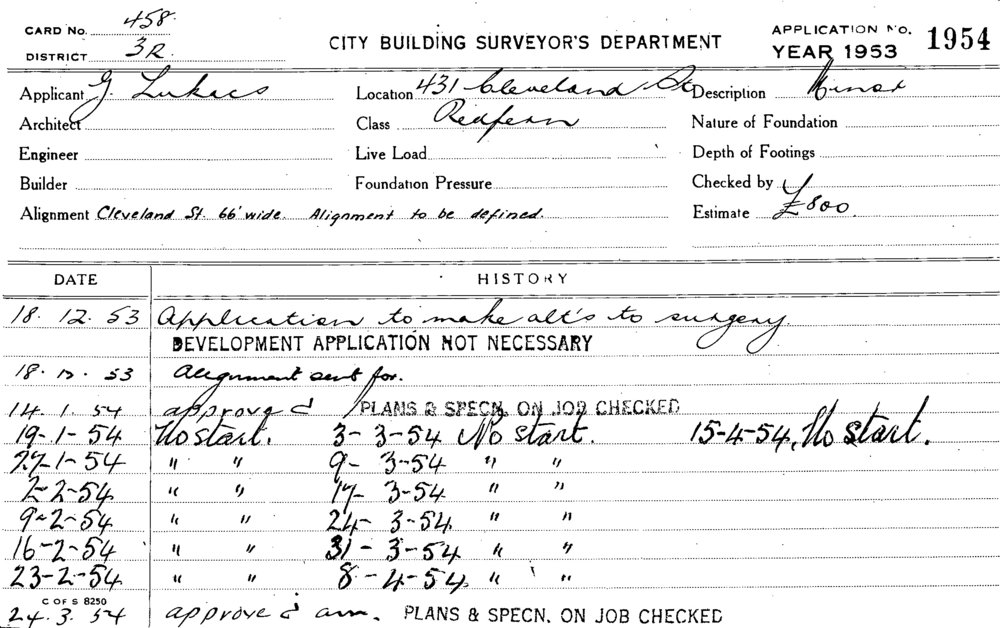 CARD No. 458
DISTRICT 3R
CITY BUILDING SURVEYOR'S DEPARTMENT
APPLICATION No. 1954
YEAR 1953
Applicant G. Lukacs Location 431 Cleveland St Description Minor
Architect Class Redfern Nature of Foundation
Engineer Live Load Depth of Footings
Builder Foundation Pressure Checked by
Alignment Cleveland St. 66' wide. Alignment to be defined. Estimate £800.
DATE HISTORY
18. 12. 53 Application to make alt's to surgery.
DEVELOPMENT APPLICATION NOT NECESSARY
18. 12. 53 Alignment sent for.
14. 1. 54 approved PLANS & SPECN. ON JOB CHECKED
19-1-54 No start. 3-3-54 No start. 15-4-54, No start.
27-1-54 " " 9-3-54 " "
2-2-54 " " 17-3-54 " "
9-2-54 " " 24-3-54 " "
16-2-54 " " 31-3-54 " "
23-2-54 " " 8-4-54 " "
C OF S 8250
24. 3. 54 approved am. PLANS & SPECN. ON JOB CHECKED